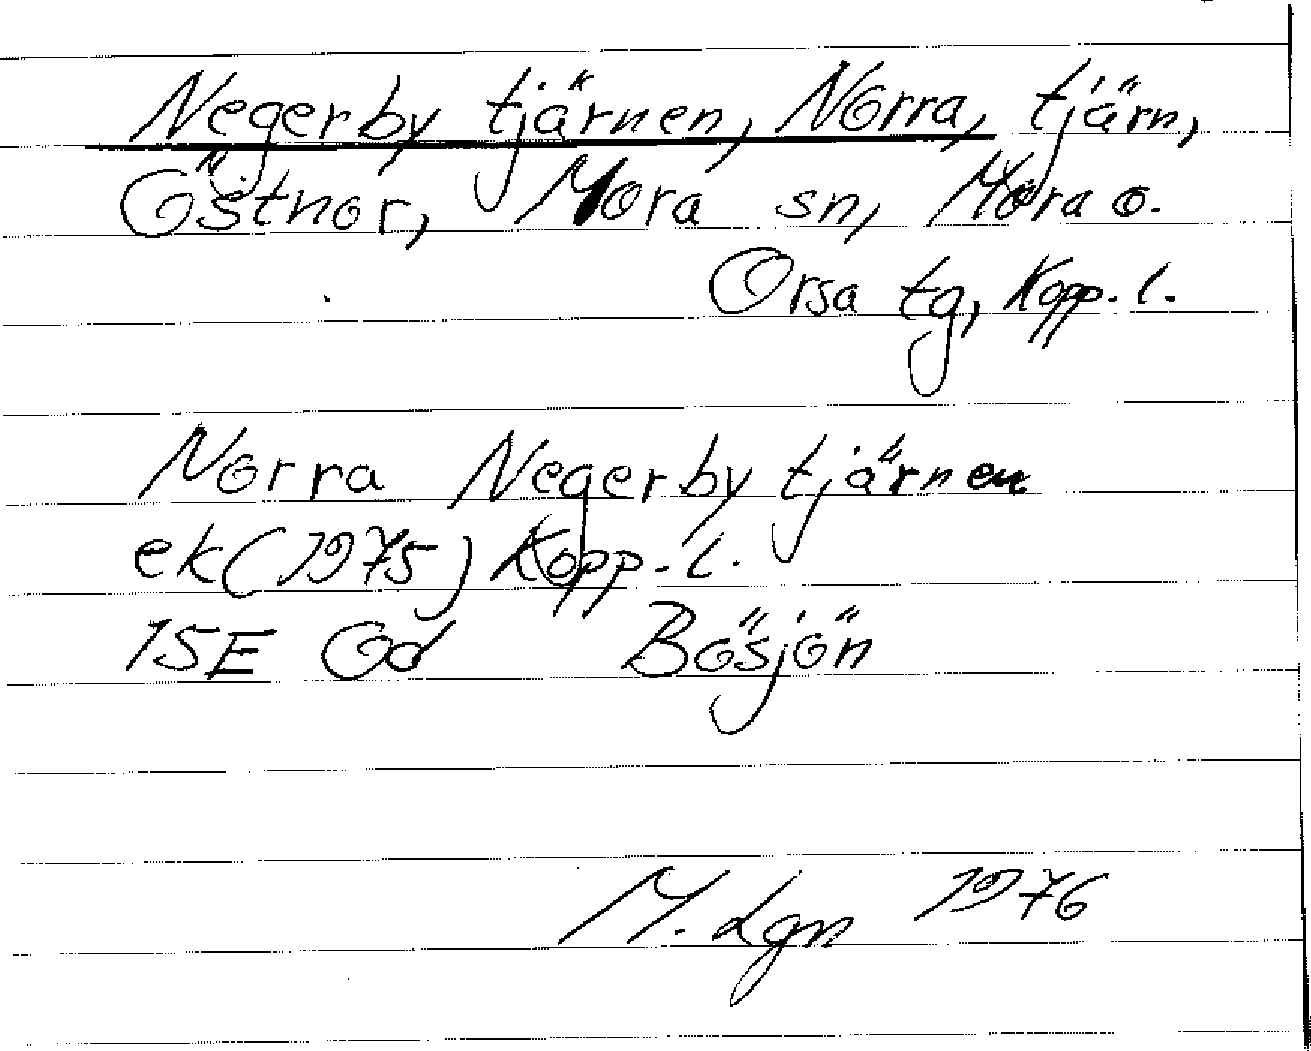 Negerby tjärnen, Norra, tjärn,
Östnor, Mora sn, Mora o.
Orsa tg, Kopp. l.
Norra Negerby tjärnen
ek (1975) Kopp. l.
15E Od Bösjön
M. Lgn 1976